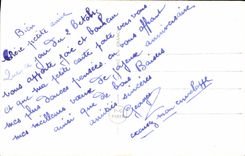 Bien
chère petite amie
Que ce jour du 2 Octobre
vous apporte joie et bonheur
et que ma petite carte porte vers vous
mes plus douces pensées en vous offrant
mes meilleurs vœux de joyeux anniversaire
ainsi que de bons Baisers
amitiés sincères
Georges